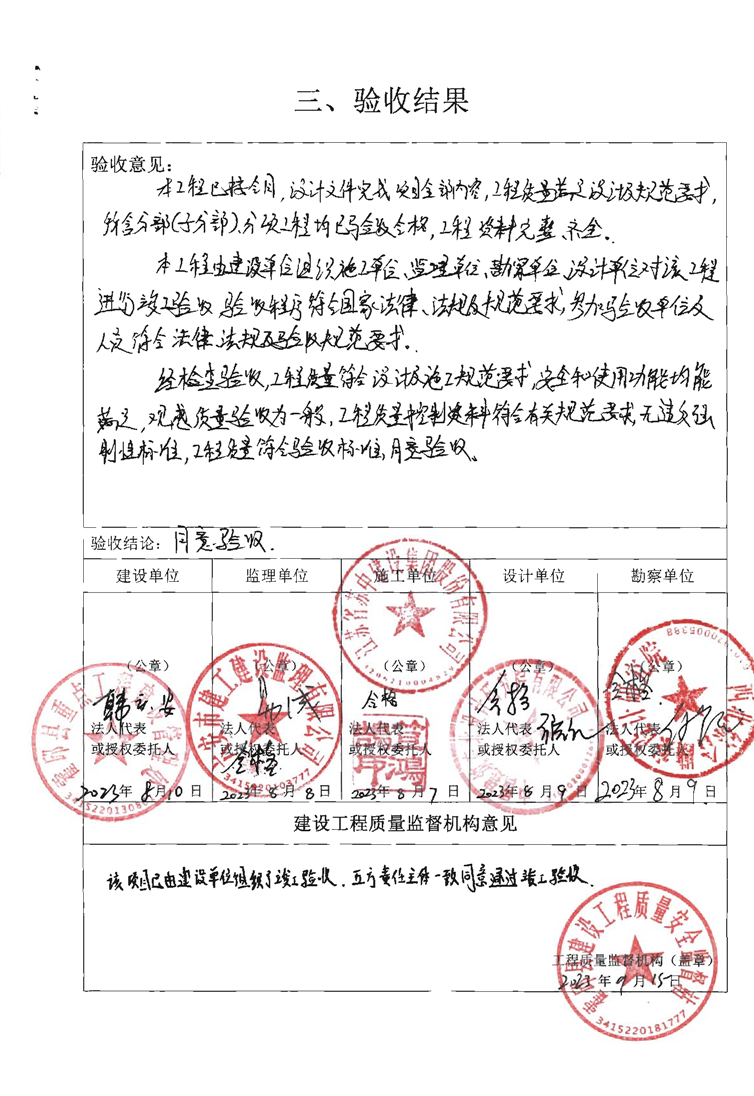 三、验收结果
验收意见：
本工程已按合同、设计文件完成项目全部内容，工程质量满足设计及规范要求，
所含分部(子分部)、分项工程均已验收合格，工程资料完整、齐全。
本工程由建设单位组织施工单位、监理单位、勘察单位、设计单位对该工程
进行竣工验收，验收程序符合国家法律、法规及规范要求，参加验收单位及
人员符合法律、法规及验收规范要求。
经检查验收，工程质量符合设计及施工规范要求，安全和使用功能均能
满足，观感质量验收为一般，工程质量控制资料符合有关规范要求，无违反强
制性标准，工程质量符合验收标准，同意验收。
验收结论：同意验收.
建设单位 监理单位 施工单位 设计单位 勘察单位
江苏省苏中建设集团股份有限公司
（公章） （公章） （公章） （公章） （公章）
霍邱县重点工程
六安市建工建设监理有限公司
合格 合格 合格
法人代表 法人代表 法人代表 法人代表 法人代表
或授权委托人 或授权委托人 或授权委托人 或授权委托人 或授权委托人
合格
3415220103777
2023年8月10日 2023年8月8日 2023年8月7日 2023年8月9日 2023年8月9日
建设工程质量监督机构意见
该项目已由建设单位组织了竣工验收，五方责任主体一致同意通过竣工验收.
霍邱县建设工程质量安全监督站
工程质量监督机构（盖章）
2023年9月15日
3415220181777